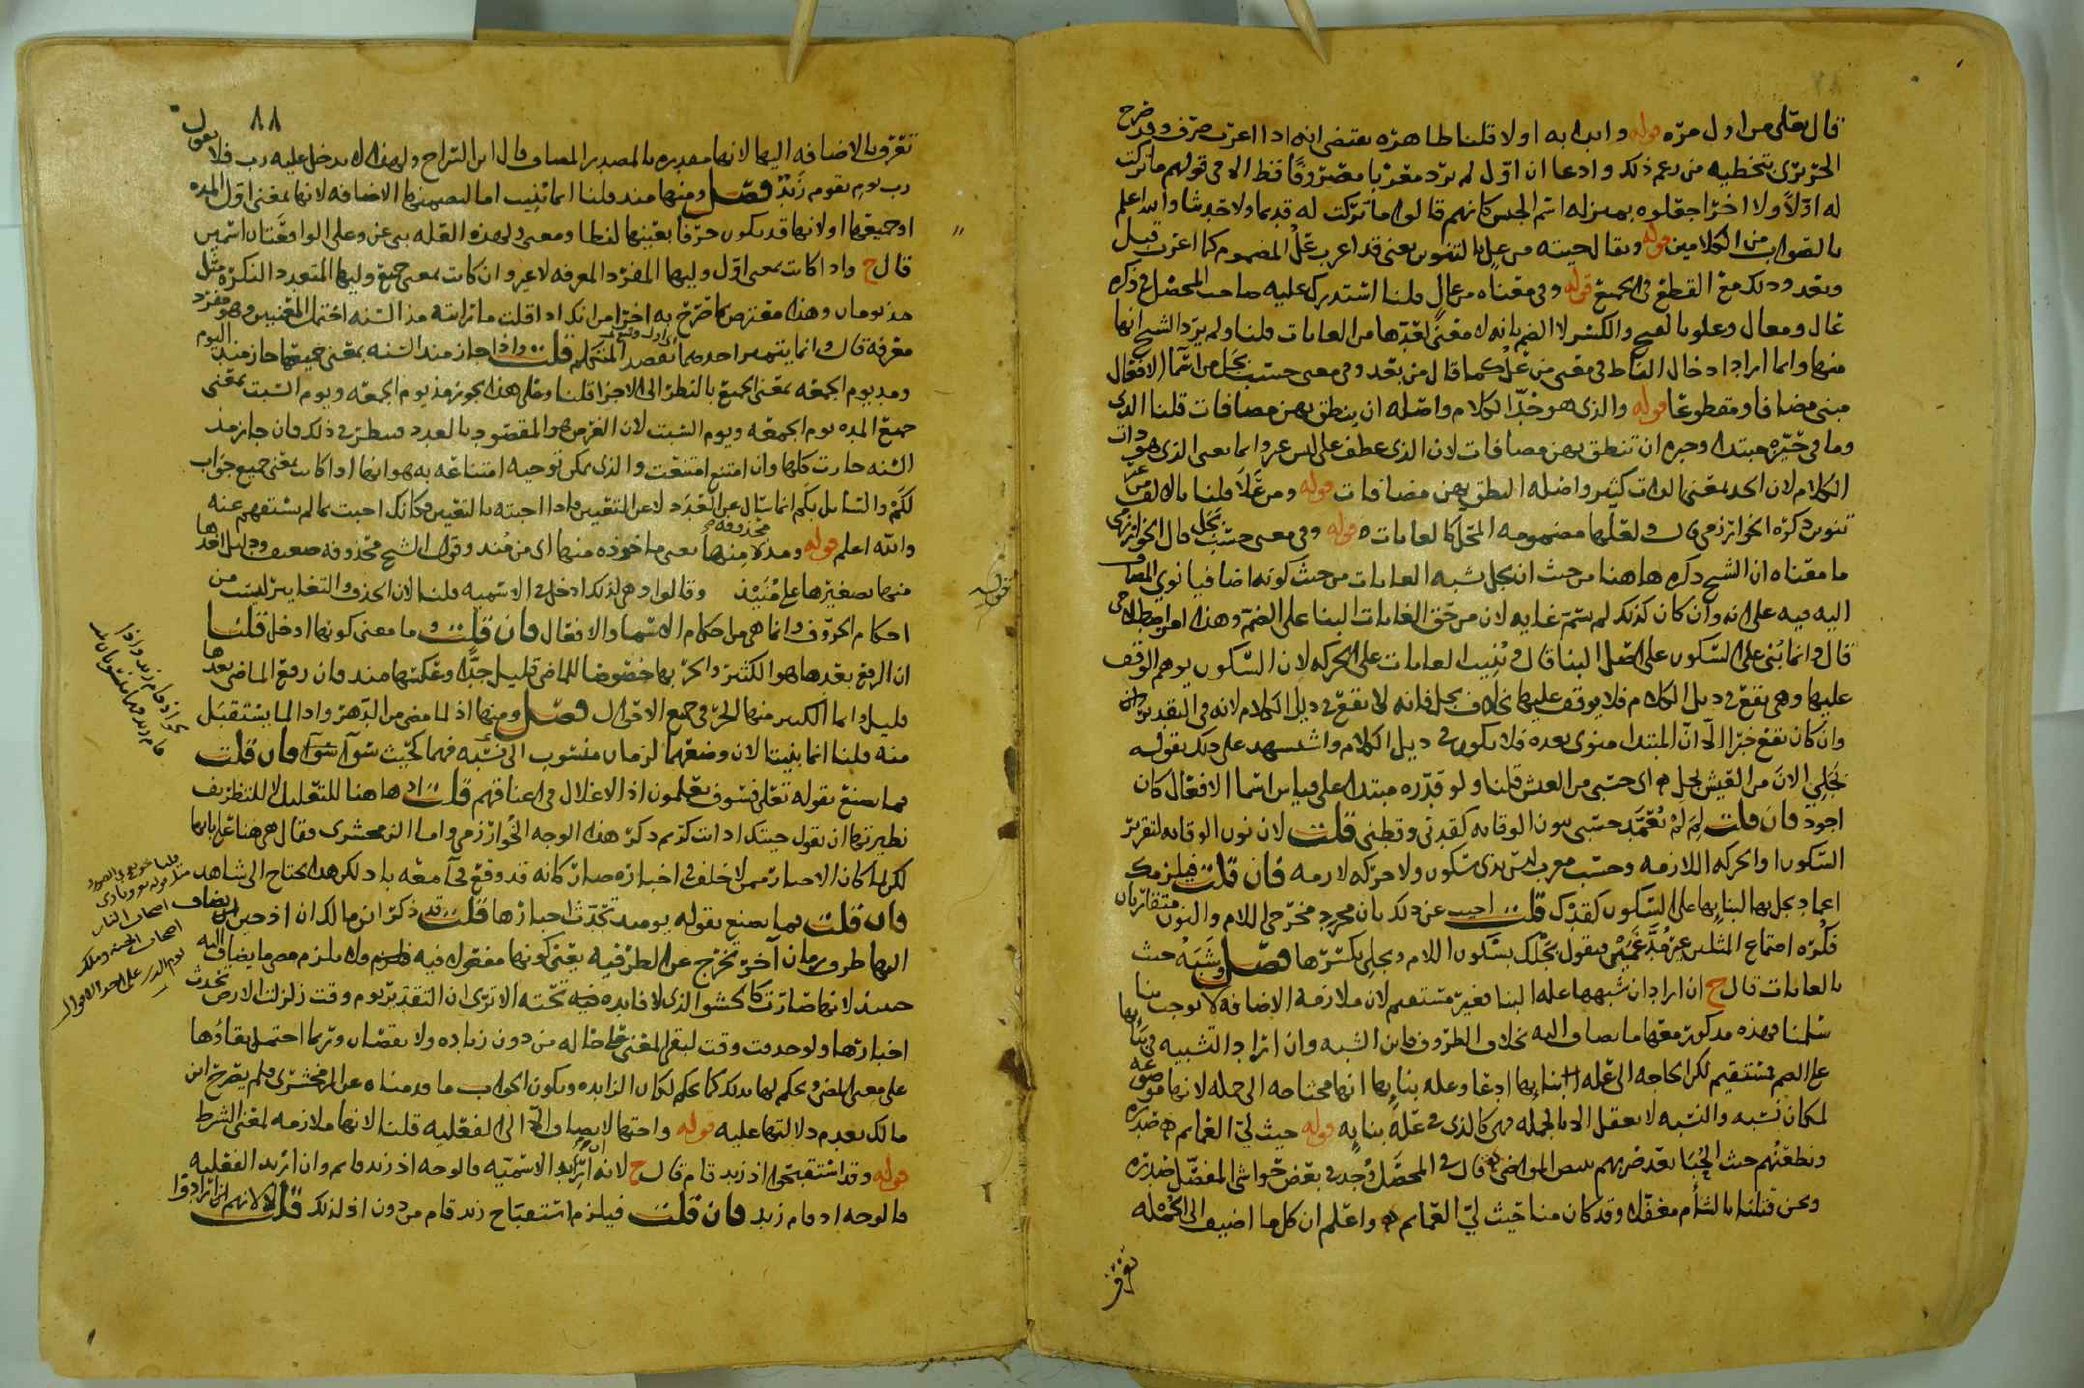 قال تعلى من اول مرّه قوله وابدا به اولا قلنا ظاهره يقتضى انه اذا اعرب صرف وقد صرح
الحريرى بتخطيه من زعم ذلك وادعا ان اوّل لم يرد معربا مصروفًا قط الا في قولهم ما تركت
له اوّلاً ولا اخرا جعلوه بمنزله اسم الجنس كانهم قالوا ما تركت له قديما ولا حديثا والله اعلم
بالصواب من الكلامين قوله ويقال جيته من علٍ بالتنوين يعني قد اعرب علُ المضموم كما اعرب قبل
وبعد وذلك مع القطع في الجميع قوله وفي معناه من عالٍ قلنا استدرك عليه صاحب المحصل في ذكره
عال ومعال وعلو بالفتح والكسر لا الضم بانه لا معنى لعدّها من الغايات قلنا ولم يرد الشيخ انها
منها وانما اراد ادخال الفاظ في معنى من علُ كما قال من بعد وفي معنى حسب بجل من اسما الافعال
مبنى مضافا ومقطوعًا قوله والذى هو حدّ الكلام واصله ان ينطق بهن مضافات قلنا الذى
وما في حيّزه مبتدا وخبره ان تنطق بهن مضافات لان الذى عطف على ليس غير وانما يعنى الذى هو
الكلام لان الحد بمعنيها لوات كثير واصله النطق بهن مضافات قوله ومن علا قلنا بالالف من غير
تنوين ذكره الخوارزمى قال ولعلّها مضمومه المحل كالغايات قوله وفي معنى حسب بجل قال الخوارزمى
ما معناه ان الشيخ ذكره هاهنا من حيث ان بجل شبه الغايات من حيث كونه اضافيا نوى المضاف
اليه فيه على انه وان كان كذلك لم يسمّ غايه لان من حق الغايات البنا على الضم وهذا
قال وانما بُنى على السكون على اصل البنا قال وبُنيت الغايات على الحركه لان السكون يوهم الوقف
عليها وهى تقع في ذيل الكلام فلا يوقف عليها بخلاف بجل فانه لا يقع في ذيل الكلام لانه في التقدير
وان كان يقع خبرا الا انّ المبتدا منوى بعده فلا يكون في ذيل الكلام واستشهد على ذلك بقوله
بَجَلِي الان من العيش بجل اى حسبى من العيش قلنا ولو قدّره مبتدا على قياس اسما الافعال كان
اجود فان قلت لِمَ لم تُعْمَد حسبى بنون الوقايه كقدنى وقطنى قلت لان نون الوقايه لتقرير
السكون او الحركه اللازمه وحسب معرب ليس بذى سكون ولا حركه لازمه فان قلت فيلزمك
اعماد بجل بها لبنايها على السكون كقدك قلت اجيب عن ذلك بان مخرجى اللام والنون متقاربان
فكره اجتماع المثلين فيقول بجلْك بسكون اللام وبجلِي بكسرها فصل وشبّه حيث
بالغايات قال ح ان اراد ان شبهها عله البنا فغير مستقيم لان ملازمة الاضافه لا توجب بنا
سلمنا فهذه مذكور معها ما يضاف اليه بخلاف الظروف فاين الشبه وان اراد التشبيه في بنايها
على الضم فمستقيم لكن الحاجه الى عله بنايها ادعا وعله بنايها انها محتاجه الى جمله لانها موضوعه
لمكان نسبه والنسبه لا تعقل الا بالجمله فهى كالذى في علّه بنايه قوله حيث ليّ العمايم صدره
ونطعنُهم حيث الحُبَا بعد ضربهم ببيض المواضى قال في المحصَّل وُجد في بعض حواشى المفصّل صدره
ونحن قتلنا بالشأم مغفّلا وقد كان منا حيث ليّ العمايم واعلم ان كل ما اضيف الى الجمله
تعرف

٨٨
تعرف بالاضافه اليها لانها مقدره بالمصدر المضاف قال ابن السراج ولهذا لا يدخل عليه رب فلا تقول
رب يوم يقوم زيد فصل ومنها منذ قلنا انما بُنيت اما لتضمنها الاضافه لانها بمعنى اوّل المده
او جميعها او لانها قد يكون حرفا بعينها لفظا ومعنى ولهذه العله بنى عن وعلى الواقعتان اسمين
قال ح واذا كانت بمعنى اوّل وليها المفرد المعرفه لا غير وان كانت بمعنى جميع وليها المتعدد النكره مثل
مذ يومان وهذا معترض بما صرّح به اخرا من انك اذا قلت ما رايته مذ السنه احتمل المعنيين وهو مفرد
معرفه قال وانما يتميز احدهما بقصد المتكلم قلت واذا جاز منذ السنه بمعنى جميعها جاز منذ اليوم
ومذ يوم الجمعه بمعنى الجميع بالنظر الى الاجزا قلنا وعلى هذا يجوز مذ يوم الجمعه ويوم السبت بمعنى
جميع المده يوم الجمعه ويوم السبت لان الغرض هو المقصود بالعدد فينظر في ذلك فان جاز مذ
السنه جازت كلها وان امتنع امتنعت والذى يمكن توجيه امتناعه به هو انها اذا كانت بمعنى جميع جواب
لكم والسايل بكم انما سال عن العدد لا عن التعيين فاذا اجبته بالتعيين فكانك اجبت بما لم يستفهم عنه
والله اعلم قوله ومذ محذوفه منها يعنى ماخوذه منها اى من منذ وقول الشيخ محذوفه ضعيف ودليل اخذها
منها تصغيرها على مُنَيْذ وقالوا وهى لذلك ادخل في الاسميه قلنا لان الحذف والتغاير ليست من
احكام الحروف وانما هى من احكام الاسما والافعال فان قلت وما معنى كونها ادخل قلنا
ان الرفع بعدها هو الكثير والجر بها خصوصًا للماضى قليل جدًّا وعكسها منذ فان رفع الماضى بعدها
قليل وانما الكثير منها الجر في جميع الاحوال فصل ومنها اذ لما مضى من الدهر واذا لما يستقبل
منه قلنا انما بنيتا لان وضعهما لزمان منسوب الى نسبه فهما كحيث سَوآ سَوآ فان قلت
فما يصنع بقوله تعلى فسوف يعلمون اذ الاغلال في اعناقهم قلت اذ هاهنا للتعليل لا للتظريف
نظيرتها ان تقول جيتك اذ انت كريم ذكر هذا الوجه الخوارزمى واما الزمخشرى فقال هى هنا على بابها
لكن لما كان الاخبار ممن لا خلف في اخباره صار كانه قد وقع فى امعه باذ لكن هذا يحتاج الى شاهد
فان قلت فما يصنع بقوله يوميذ تحدّث اخبارها قلت قد ذكر ابن مالك ان اذ حين يضاف
اليها ظرف زمان آخر تخرج عن الظرفيه يعنى كونها مفعولا فيه ولا يلزم مضى ما يضاف اليه
حينيذ لانها صارت كالحشو الذى لا فايده تحته الا ترى ان التقدير يوم وقت زلزلت الارض تحدث
اخبارها ولو حذفت وقت لبقى المعنى على حاله من دون زياده ولا نقصان وربما احتمل بقاؤها
على معنى المضى ونحكم لها بذلك كما نحكم لكان الزايده ويكون الجواب ما قدمناه عن الزمخشرى فلم يصرّح ابن
مالك بعدم دلالتها عليه قوله واختها لا يضاف الا الى الفعليه قلنا لانها ملازمه لمعنى الشرط
قوله وقد استقبحوا اذ زيد قام قال ح لانه ان اريد الاسميّه فالوجه اذ زيد قايم وان اريد الفعليه
فالوجه اذ قام زيد فان قلت فيلزم استقباح زيد قام من دون اذ لذلك قلت لا لانهم ان ارادوا